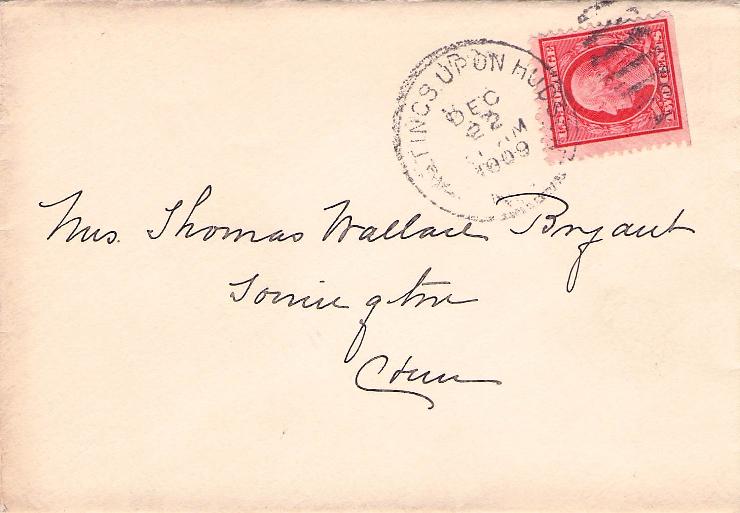 HASTINGS UPON HUDSON
DEC
22
M
1909
U.S. POSTAGE
TWO CENTS
Mrs. Thomas Wallace Bryant
Torrington
Conn